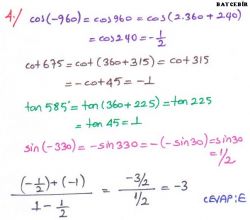 BAYCEBİR
4./ cos(-960) = cos960 = cos(2.360+240)
= cos240 = -1/2
cot675 = cot(360+315) = cot315
= -cot45 = -1
tan585° = tan(360+225) = tan225
= tan45 = 1
sin(-330) = -sin330 = -(-sin30) = sin30
= 1/2
((-1/2)+(-1))/(1-1/2) = (-3/2)/(1/2) = -3
CEVAP: E